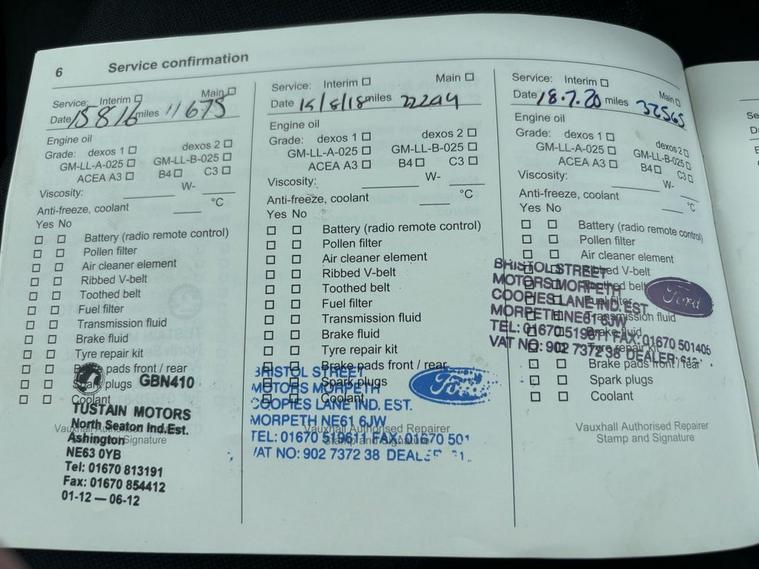 6 Service confirmation
Service: Interim Main
Date 15 8/16 miles 11675
Engine oil
Grade: dexos 1 dexos 2
GM-LL-A-025 GM-LL-B-025
ACEA A3 B4 C3
Viscosity: W-
Anti-freeze, coolant °C
Yes No
Battery (radio remote control)
Pollen filter
Air cleaner element
Ribbed V-belt
Toothed belt
Fuel filter
Transmission fluid
Brake fluid
Tyre repair kit
Brake pads front / rear
Spark plugs
Coolant
GBN410
TUSTAIN MOTORS
North Seaton Ind.Est.
Ashington
NE63 0YB
Tel: 01670 813191
Fax: 01670 854412
01-12 — 06-12
Service: Interim Main
Date 15/8/18 miles
Engine oil
Grade: dexos 1 dexos 2
GM-LL-A-025 GM-LL-B-025
ACEA A3 B4 C3
Viscosity: W-
Anti-freeze, coolant °C
Yes No
Battery (radio remote control)
Pollen filter
Air cleaner element
Ribbed V-belt
Toothed belt
Fuel filter
Transmission fluid
Brake fluid
Tyre repair kit
Brake pads front / rear
Spark plugs
Coolant
Vauxhall Authorised Repairer
Stamp and Signature
BRISTOL STREET
MOTORS MORPETH
COOPIES LANE IND. EST.
MORPETH NE61 6JW
TEL: 01670 519611 FAX: 01670 501
VAT NO: 902 7372 38 DEALER
Ford
Service: Interim Main
Date 18.7.20 miles 32565
Engine oil
Grade: dexos 1 dexos 2
GM-LL-A-025 GM-LL-B-025
ACEA A3 B4 C3
Viscosity: W-
Anti-freeze, coolant °C
Yes No
Battery (radio remote control)
Pollen filter
Air cleaner element
Ribbed V-belt
Toothed belt
Fuel filter
Transmission fluid
Brake fluid
Tyre repair kit
Brake pads front / rear
Spark plugs
Coolant
BRISTOL STREET
MOTORS MORPETH
COOPIES LANE IND. EST
MORPETH NE61 6JW
TEL: 01670 519611 FAX: 01670 501406
VAT NO: 902 7372 38 DEALER
Ford
Vauxhall Authorised Repairer
Stamp and Signature